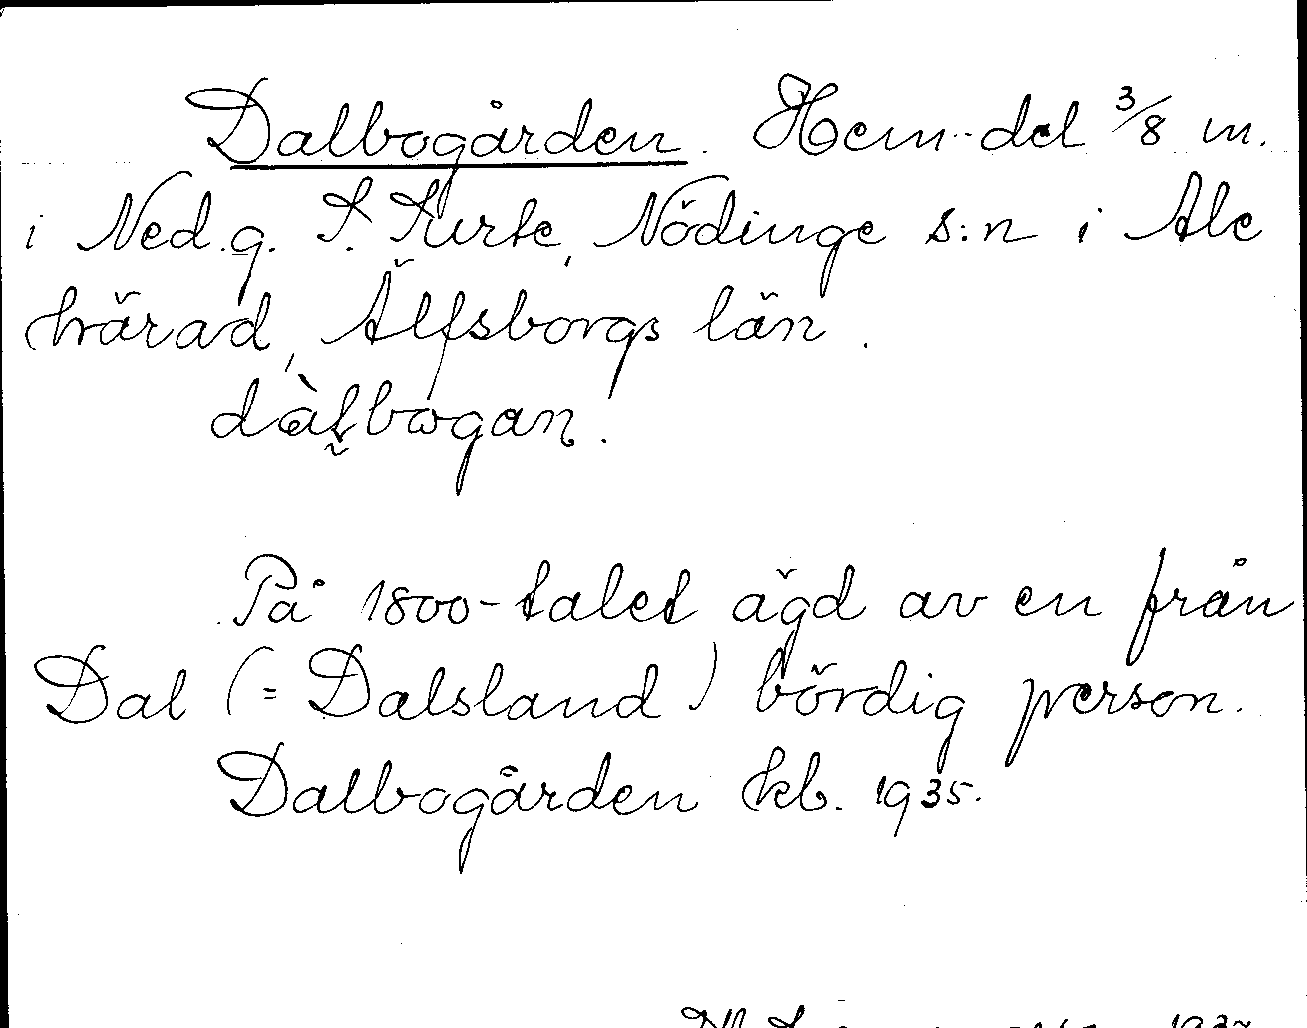 Dalbogården. Hem.del 3/8 m.
i Ned.g. S. Surte, Nödinge s:n i Ale
härad, Älfsborgs län.
dàlbogan.
På 1800-talet ägd av en från
Dal (= Dalsland) bördig person.
Dalbogården kb. 1935.